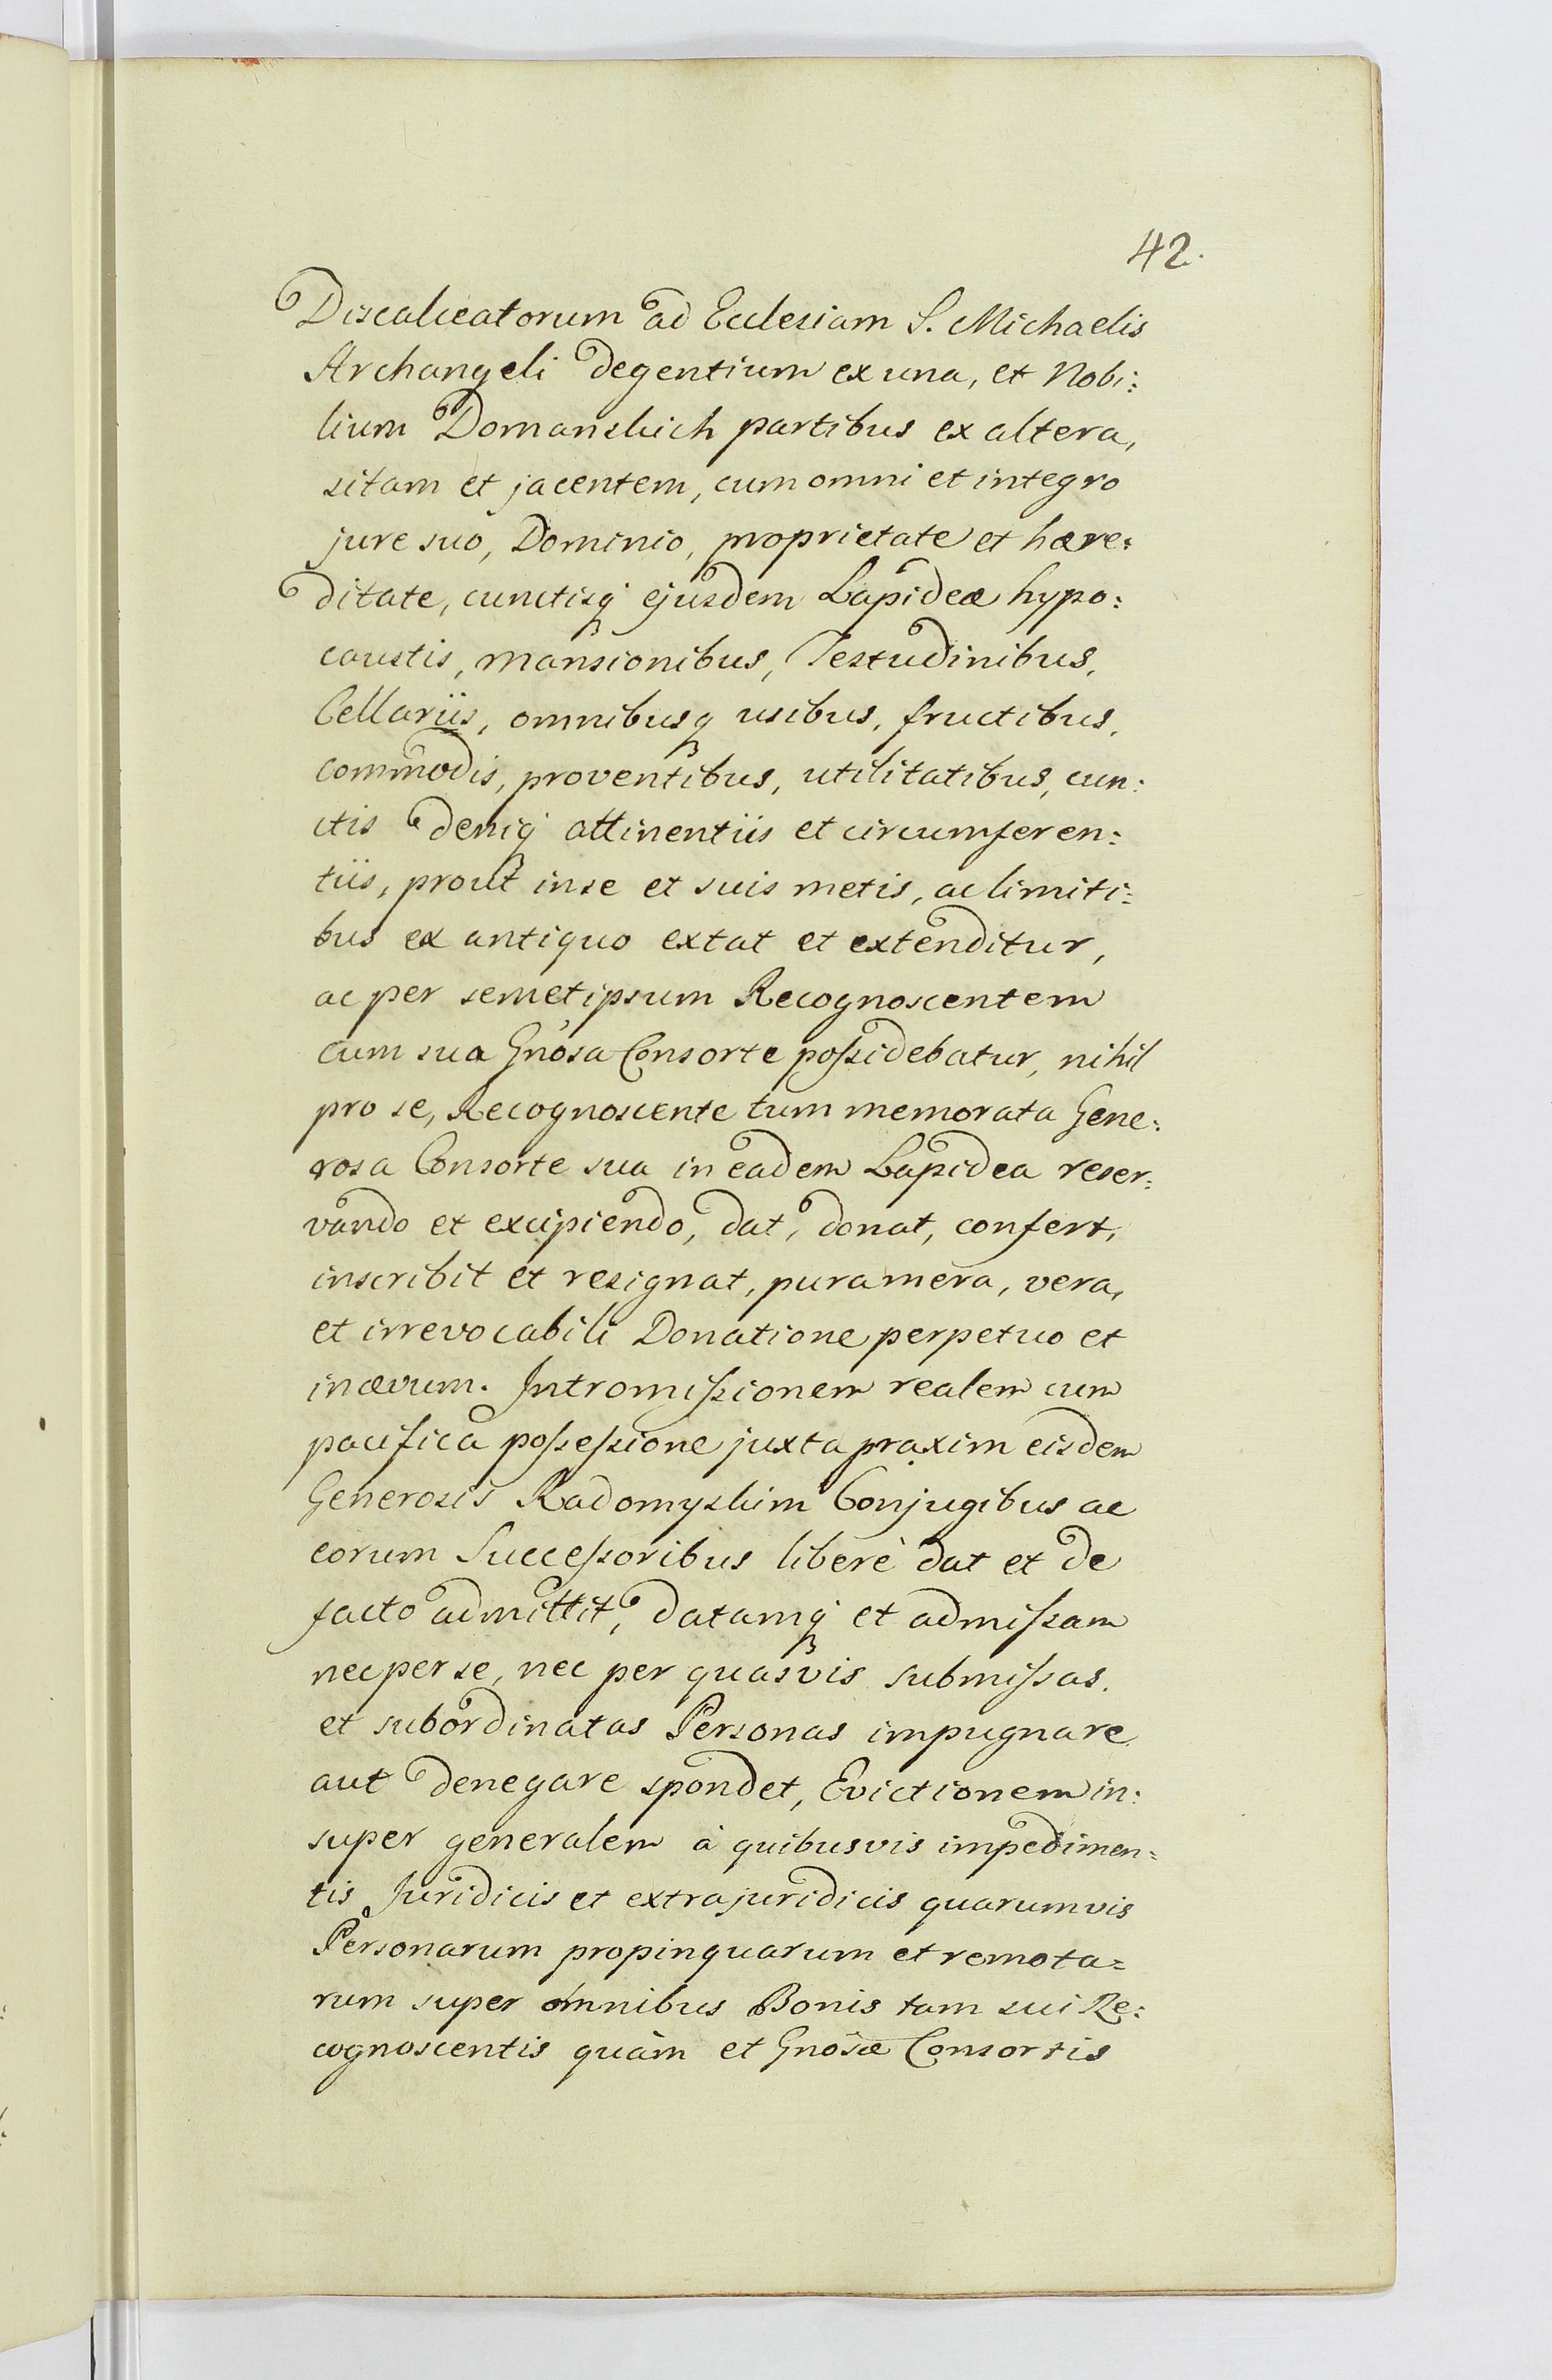 42.
Discalceatorum ad Ecclesiam S. Michaelis
Archangeli degentium ex una, et Nobi:
lium Domanskich partibus ex altera,
sitam et jacentem, cum omni et integro
jure suo, Dominio, proprietate et hære:
ditate, cunctisq ejusdem Lapideæ hypo:
caustis, mansionibus, Testudinibus,
Cellariis, omnibusq usibus, fructibus,
commodis, proventibus, utilitatibus, cun:
ctis deniq attinentiis et circumferen:
tiis, prout in se et suis metis, ac limiti:
bus ex antiquo extat et extenditur,
ac per semetipsum Recognoscentem
cum sua Gnosa Consorte possidebatur, nihil
pro se, Recognoscente tum memorata Gene:
rosa Consorte sua in eadem Lapidea reser:
vando et excipiendo, dat, donat, confert,
inscribit et resignat, pura mera, vera,
et irrevocabili Donatione perpetuo et
in ævum. Intromissionem realem cum
pacifica possessione juxta praxim eisdem
Generosis Radomyskim Conjugibus ac
eorum Successoribus liberè dat et de
facto admittit, datamq et admissam
nec per se, nec per quasvis submissas.
et subordinatas Personas impugnare
aut denegare spondet, Evictionem in:
super generalem à quibusvis impedimen=
tis Juridicis et extrajuridicis quarumvis
Personarum propinquarum et remota=
rum super omnibus Bonis tam sui Re:
cognoscentis quàm et Gnosæ Consortis